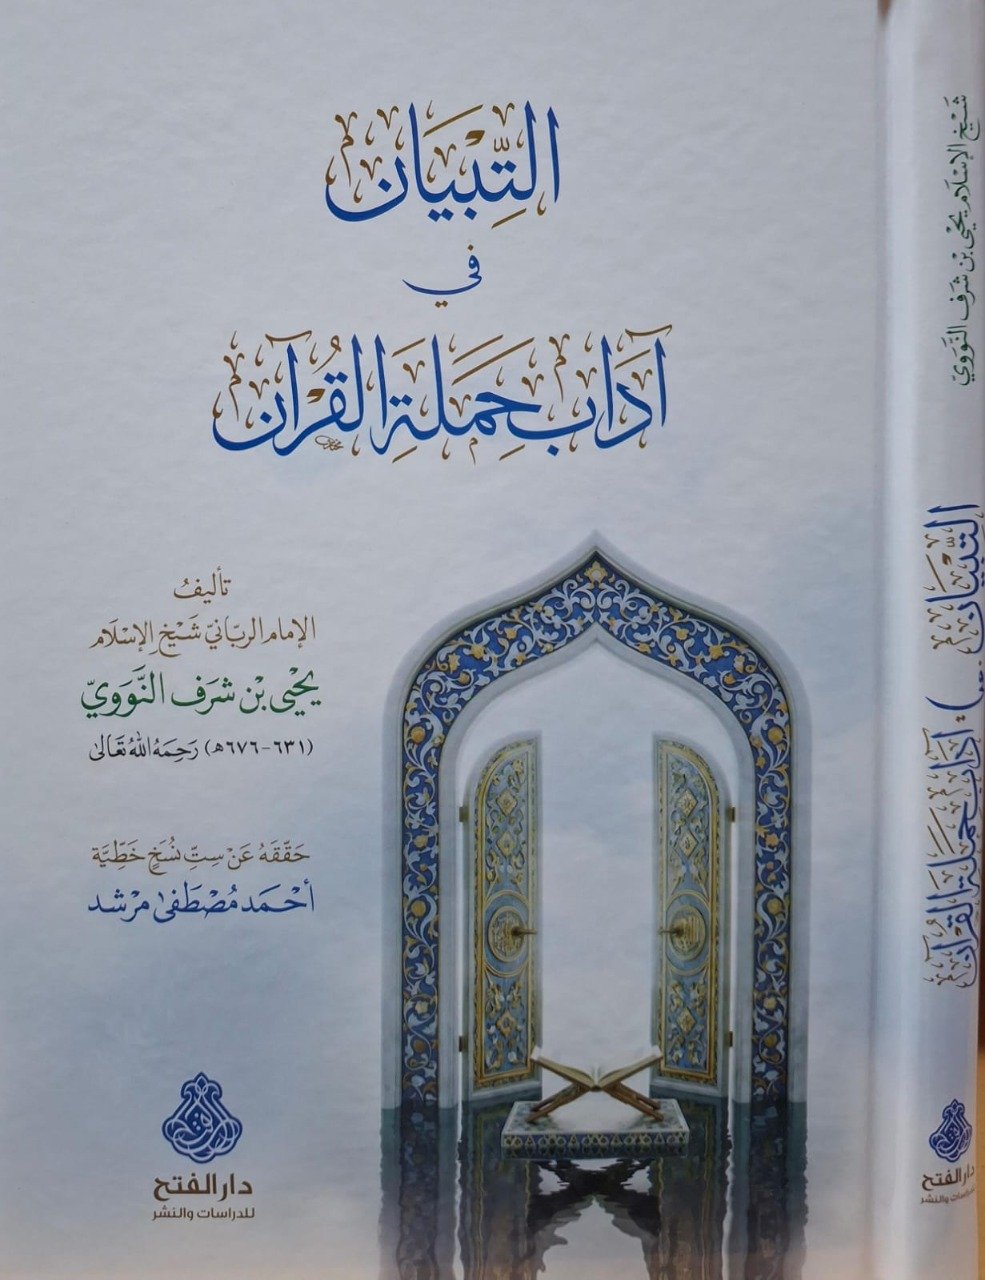 التِّبْيَان
في
آدَابِ حَمَلَةِ القُرْآن
تأليفُ
الإمام الربّانيّ شَيْخ الإسْلَام
يَحْيَى بْن شرَف النَّوَوِيّ
(٦٣١-٦٧٦هـ) رَحِمَهُ اللهُ تَعَالى
حَقَّقَهُ عَنْ سِتِّ نُسَخٍ خَطِّيَّة
أحْمَد مُصْطَفَى مرْشد
دار الفتح
للدراسات والنشر
شَيْخ الإسْلَام يَحْيَى بْن شرَف النَّوَوِيّ
التِّبْيَان في آدَابِ حَمَلَةِ القُرْآن
دار الفتح
للدراسات والنشر